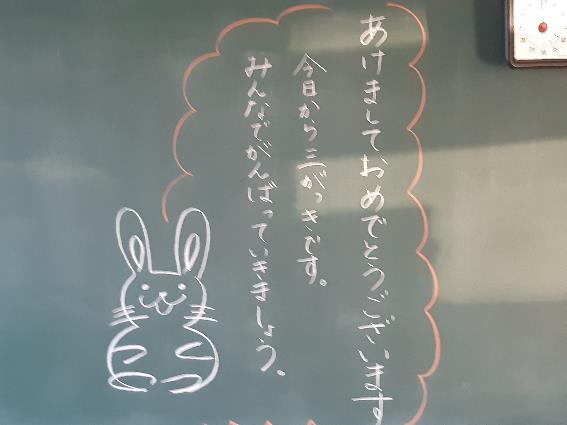 あけましておめでとうございます
今日から三がっきです。
みんなでがんばっていきましょう。